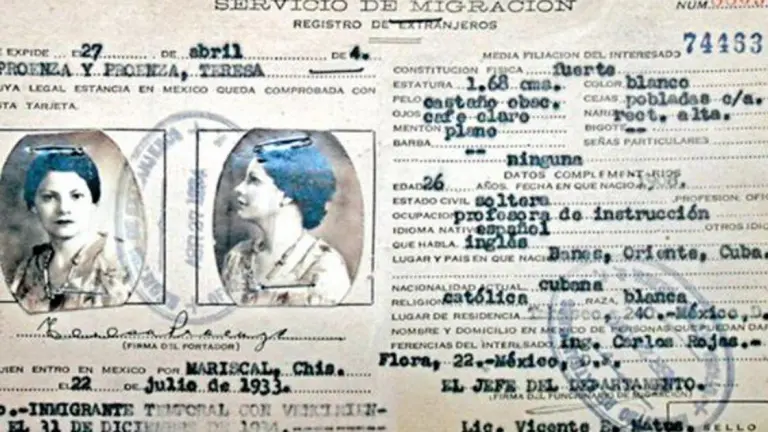 SERVICIO DE MIGRACION
REGISTRO DE EXTRANJEROS
NUM.
74463
SE EXPIDE EL 27 DE abril DE 4.
PROENZA Y PROENZA, TERESA
CUYA LEGAL ESTANCIA EN MEXICO QUEDA COMPROBADA CON
ESTA TARJETA.
(FIRMA DEL PORTADOR)
QUIEN ENTRO EN MEXICO POR MARISCAL, Chis.
EL 22 DE julio de 1933.
INMIGRANTE TEMPORAL CON VENCIMIEN-
EL 31 DE DICIEMBRE DE 1934.
MEDIA FILIACION DEL INTERESADO
CONSTITUCION FISICA fuerte
ESTATURA 1.68 cms. COLOR blanco
PELO castaño obsc. CEJAS pobladas c/a.
OJOS cafe claro NARIZ rect. alta.
MENTON plano BIGOTE --
BARBA -- SEÑAS PARTICULARES
ninguna
DATOS COMPLEMENTARIOS
EDAD 26 AÑOS. FECHA EN QUE NACIO
ESTADO CIVIL soltera PROFESION, OFI
OCUPACION profesora de instrucción
IDIOMA NATIVO español OTROS IDIO
QUE HABLA. inglés
LUGAR Y PAIS EN QUE NACIO Banes, Oriente, Cuba.
NACIONALIDAD ACTUAL cubana
RELIGION católica RAZA, blanca
LUGAR DE RESIDENCIA 240.-México, D.
NOMBRE Y DOMICILIO EN MEXICO DE PERSONAS QUE PUEDAN DAR
REFERENCIAS DEL INTERESADO ing. Carlos Rojas.-
Flora, 22.-México, D.F.
EL JEFE DEL DEPARTAMENTO.
(FIRMA DEL FUNCIONARIO DE MIGRACION)
Lic. Vicente E. Matus. SELLO